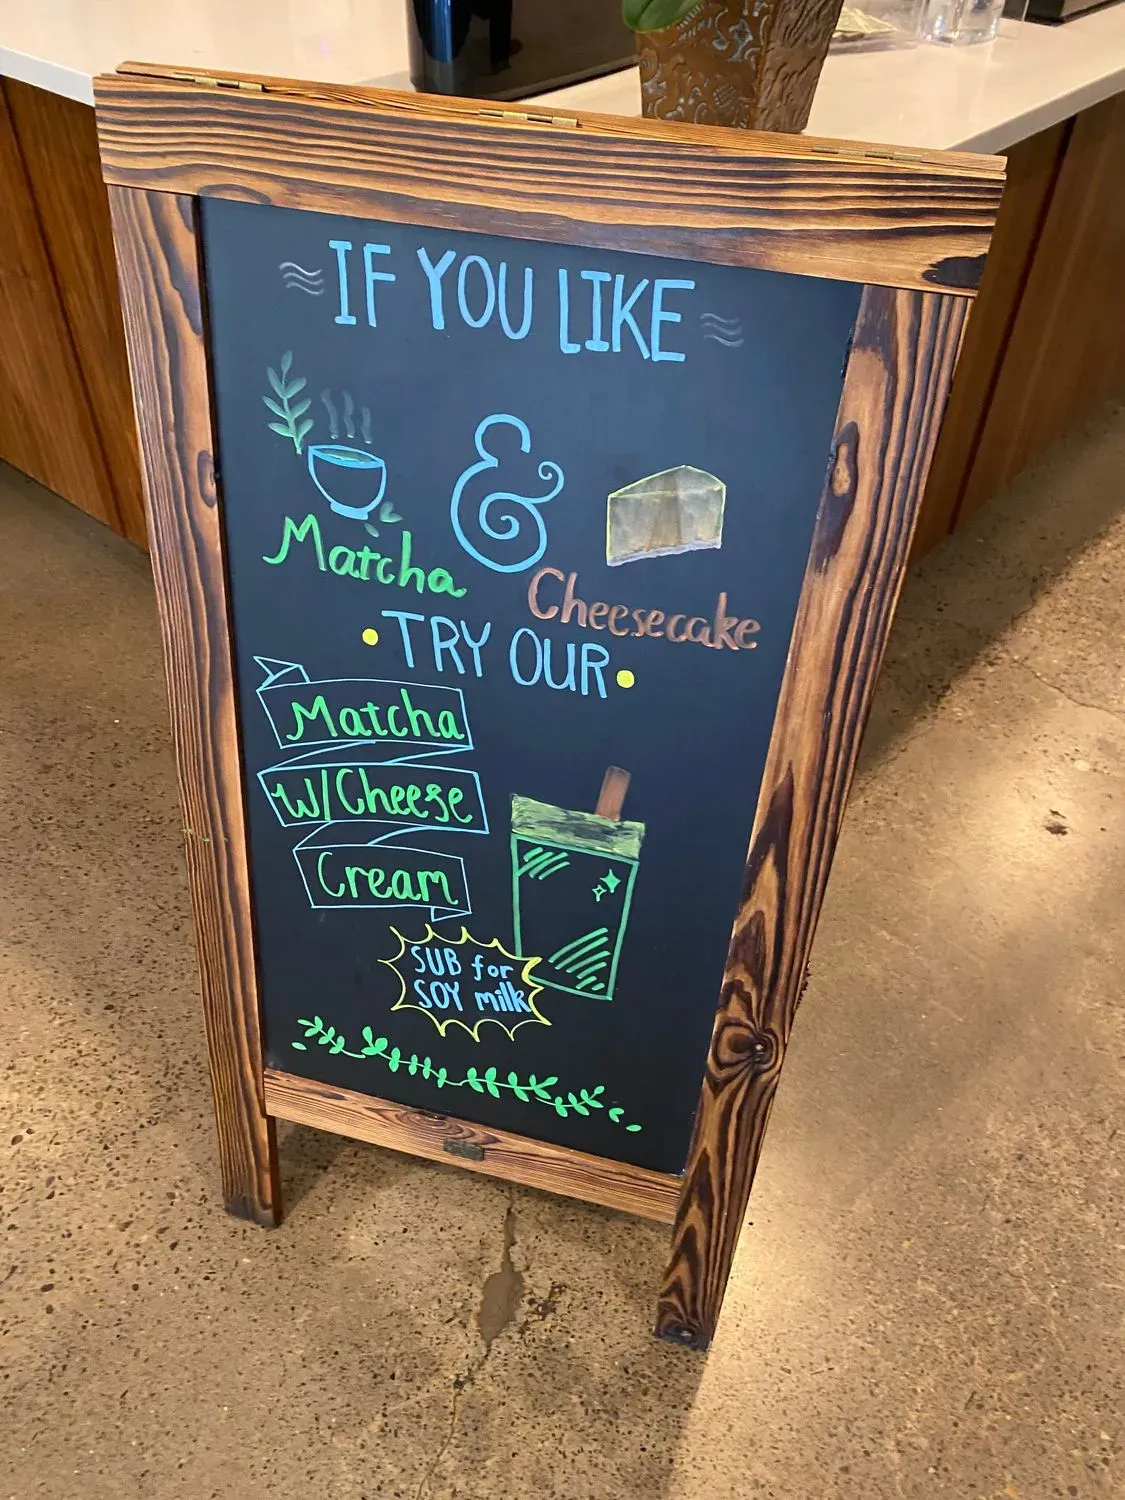 IF YOU LIKE
Matcha & Cheesecake
TRY OUR
Matcha
W/Cheese
Cream
SUB for
SOY milk